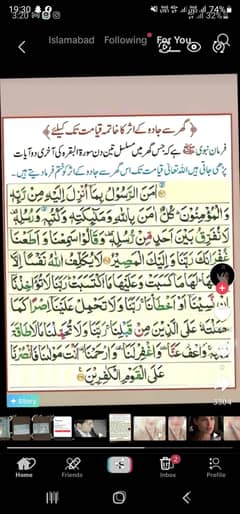 19:30 74%
3:20 32%
Islamabad Following For You
﴿گھر سے جادو کے اثر کا خاتمہ قیامت تک کیلئے﴾
فرمان نبوی ﷺ ہے کہ جس گھر میں مسلسل تین دن سورۃ البقرہ کی آخری دو آیات
پڑھی جاتی ہیں اللہ تعالیٰ قیامت تک اس گھر سے جادو کے اثر کو ختم فرما دیتے ہیں۔
اٰمَنَ الرَّسُوْلُ بِمَاۤ اُنْزِلَ اِلَيْهِ مِنْ رَّبِّهٖ
وَ الْمُؤْمِنُوْنَ ؕ كُلٌّ اٰمَنَ بِاللّٰهِ وَ مَلٰٓئِكَتِهٖ وَ كُتُبِهٖ وَ رُسُلِهٖ
لَا نُفَرِّقُ بَيْنَ اَحَدٍ مِّنْ رُّسُلِهٖ وَ قَالُوْا سَمِعْنَا وَ اَطَعْنَا
غُفْرَانَكَ رَبَّنَا وَ اِلَيْكَ الْمَصِيْرُ لَا يُكَلِّفُ اللّٰهُ نَفْسًا اِلَّا
لَهَا مَا كَسَبَتْ وَ عَلَيْهَا مَا اكْتَسَبَتْ رَبَّنَا لَا تُؤَاخِذْنَاۤ
اِنْ نَّسِيْنَاۤ اَوْ اَخْطَاْنَا رَبَّنَا وَ لَا تَحْمِلْ عَلَيْنَاۤ اِصْرًا كَمَا
حَمَلْتَهٗ عَلَى الَّذِيْنَ مِنْ قَبْلِنَا رَبَّنَا وَ لَا تُحَمِّلْنَا مَا لَا طَاقَةَ
وَ اعْفُ عَنَّا وَ اغْفِرْ لَنَا وَ ارْحَمْنَا اَنْتَ مَوْلٰىنَا فَانْصُرْنَا
عَلَى الْقَوْمِ الْكٰفِرِيْنَ
3304
+ Story
Home Friends Inbox 2 Profile